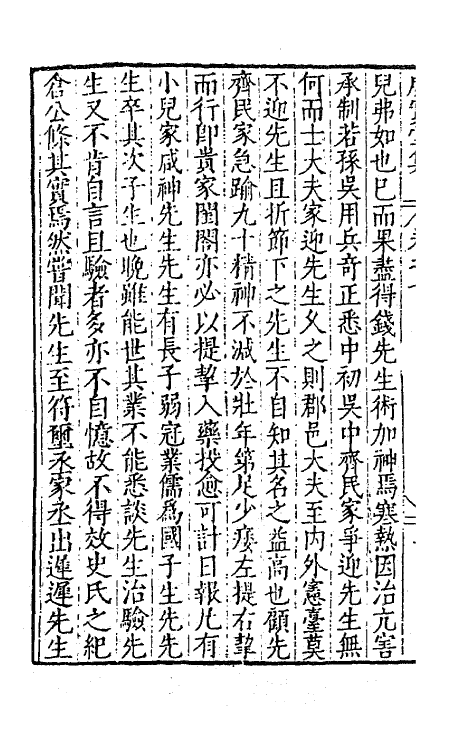 兒弗如也已而果盡得錢先生術加神焉寒熱因治亢害
承制若孫吳用兵奇正悉中初吳中齊民家爭迎先生無
何而士大夫家迎先生久之則郡邑大夫至内外憲臺莫
不迎先生且折節下之先生不自知其名之益高也顧先
齊民家急踰九十精神不減於壯年第足少痿左提右挈
而行卽貴家閨閤亦必以提挈入藥投愈可計日報凡有
小兒家咸神先生先生有長子弱冠業儒爲國子生先先
生卒其次子生也晚雖能世其業不能悉談先生治驗先
生又不肯自言且驗者多亦不自憶故不得效史氏之紀
倉公條其實焉然嘗聞先生至符璽丞家丞出遲遲先生